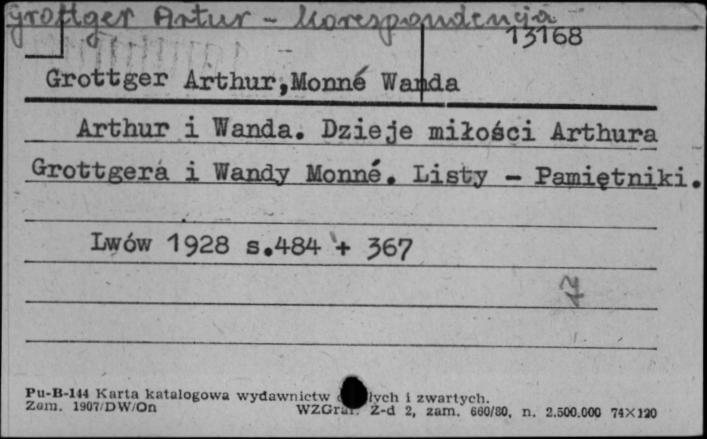 Grottger Artur - Korespondencja
13168
Grottger Arthur,Monné Wanda
Arthur i Wanda. Dzieje miłości Arthura
Grottgera i Wandy Monné. Listy - Pamiętniki.
Lwów 1928 s.484 + 367
Pu-B-144 Karta katalogowa wydawnictw i zwartych.
Zam. 1907/DW/On WZGraf. Z-d 2, zam. 660/80, n. 2.500.000 74×120